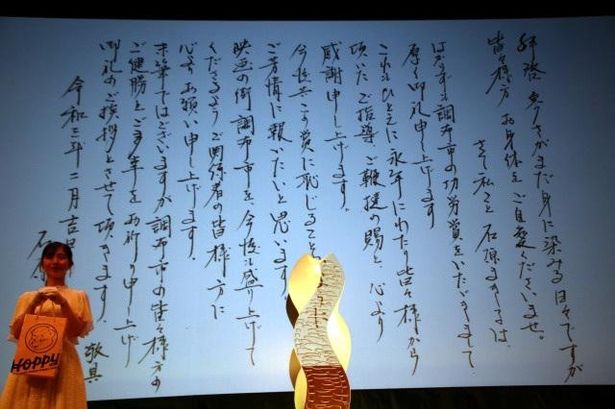 拝啓 寒さがまだ身に染みる日々ですが
皆々様方 お身体をご自愛くださいませ。
さて私こと 石原まき子は、
調布市の功労賞をいただきまして
厚く御礼申し上げます
これもひとえに永年にわたり皆々様から
頂いたご指導、ご鞭撻の賜と、心より
感謝申し上げます。
今後共この賞に恥じること
ご芳情に報いたいと思います。
映画の街 調布市を、今後も盛り上げて
くださるようご関係者の皆様方に
心よりお願い申し上げます。
末筆ではございますが調布市の皆々様方の
ご健勝とご多幸をお祈り申し上げ
御礼のご挨拶とさせて頂きます。
敬具
令和三年二月吉日
石
HOPPY